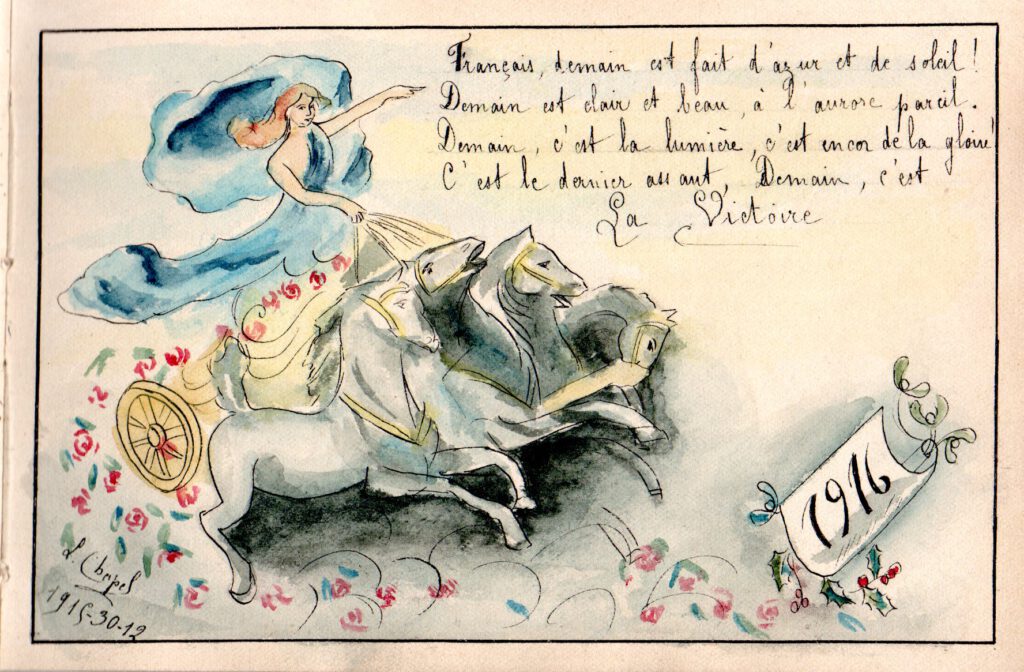 Français, demain est fait d'azur et de soleil !
Demain est clair et beau, à l'aurore pareil.
Demain, c'est la lumière, c'est encor de la gloire
C'est le dernier assaut, Demain, c'est
La Victoire
1916
L. Chapel
1915-30-12